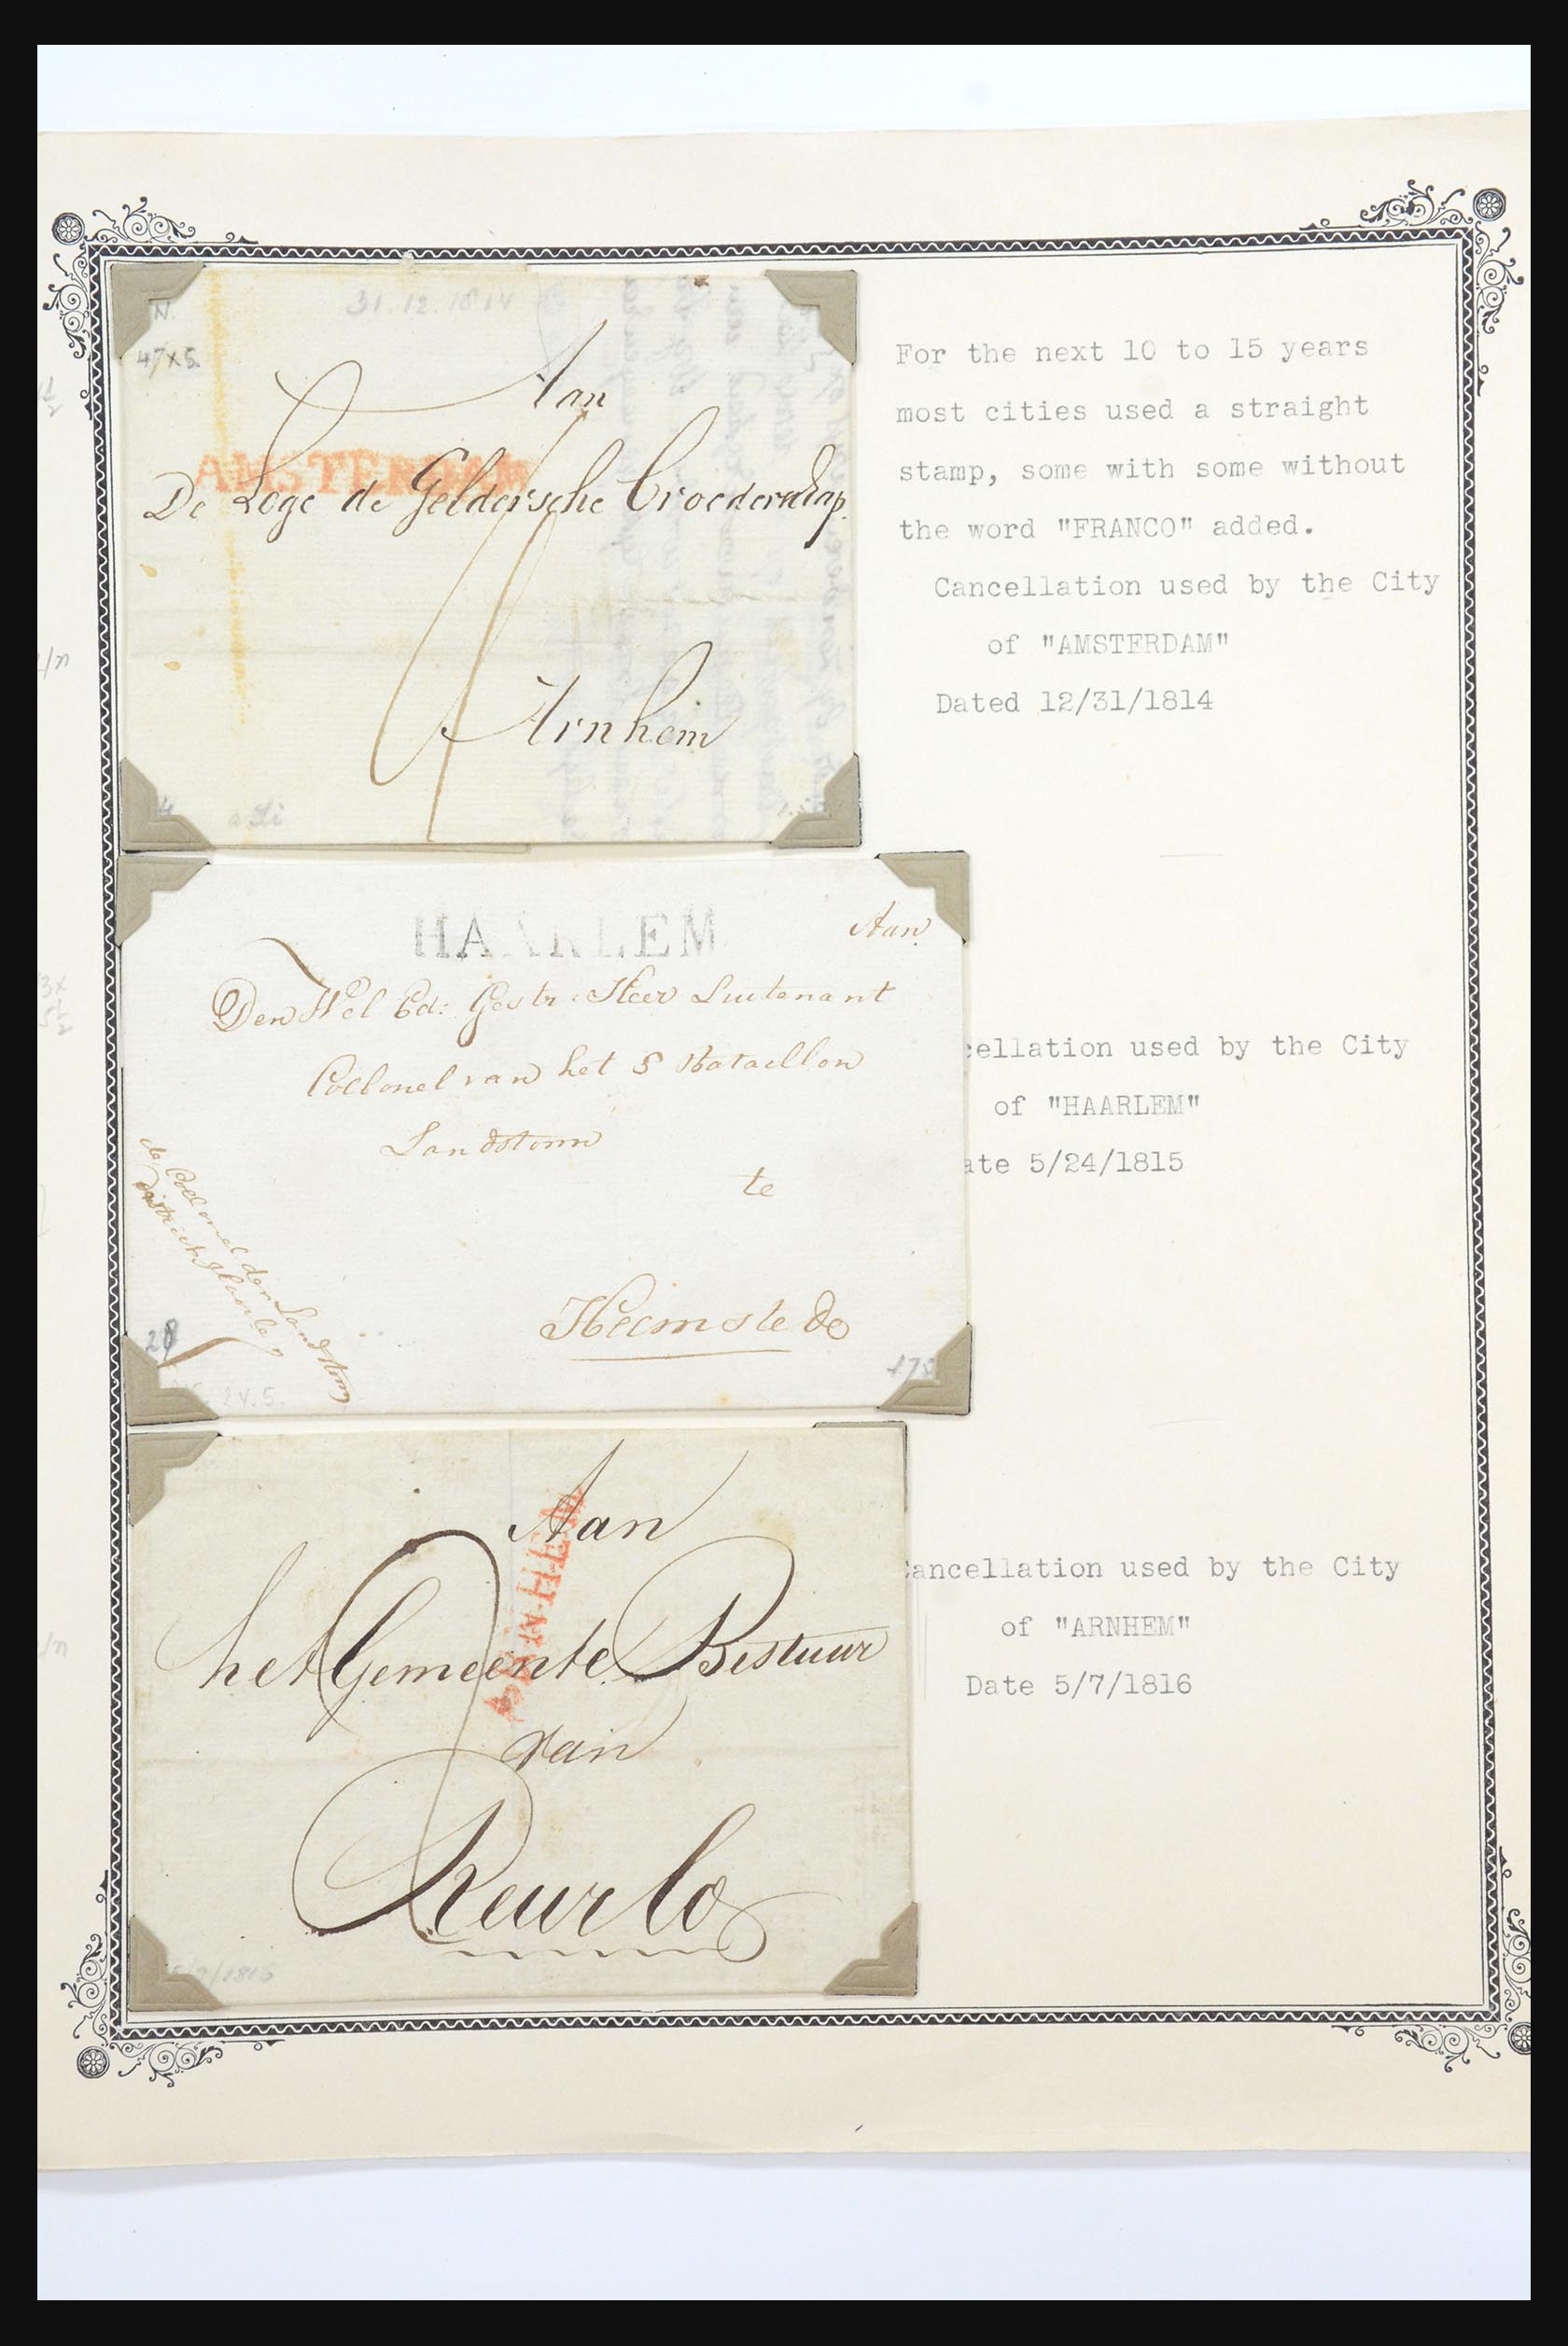 N.
31.12.1814
47x5.
Aan
AMSTERDAM
De Loge de Geldersche broederschap
Arnhem
For the next 10 to 15 years
most cities used a straight
stamp, some with some without
the word "FRANCO" added.
Cancellation used by the City
of "AMSTERDAM"
Dated 12/31/1814
HAARLEM
Aan
Den Wel Ed: Gestr: Heer Luitenant
Collonel van het 8 Bataillon
Landstorm
te
Heemstede
de Collonel der Landstorm
District Haarlem
28
24.5.
175
cellation used by the City
of "HAARLEM"
ate 5/24/1815
Aan
ARNHEM
het Gemeente Bestuur
van
Reurlo
5/7/1816
Cancellation used by the City
of "ARNHEM"
Date 5/7/1816